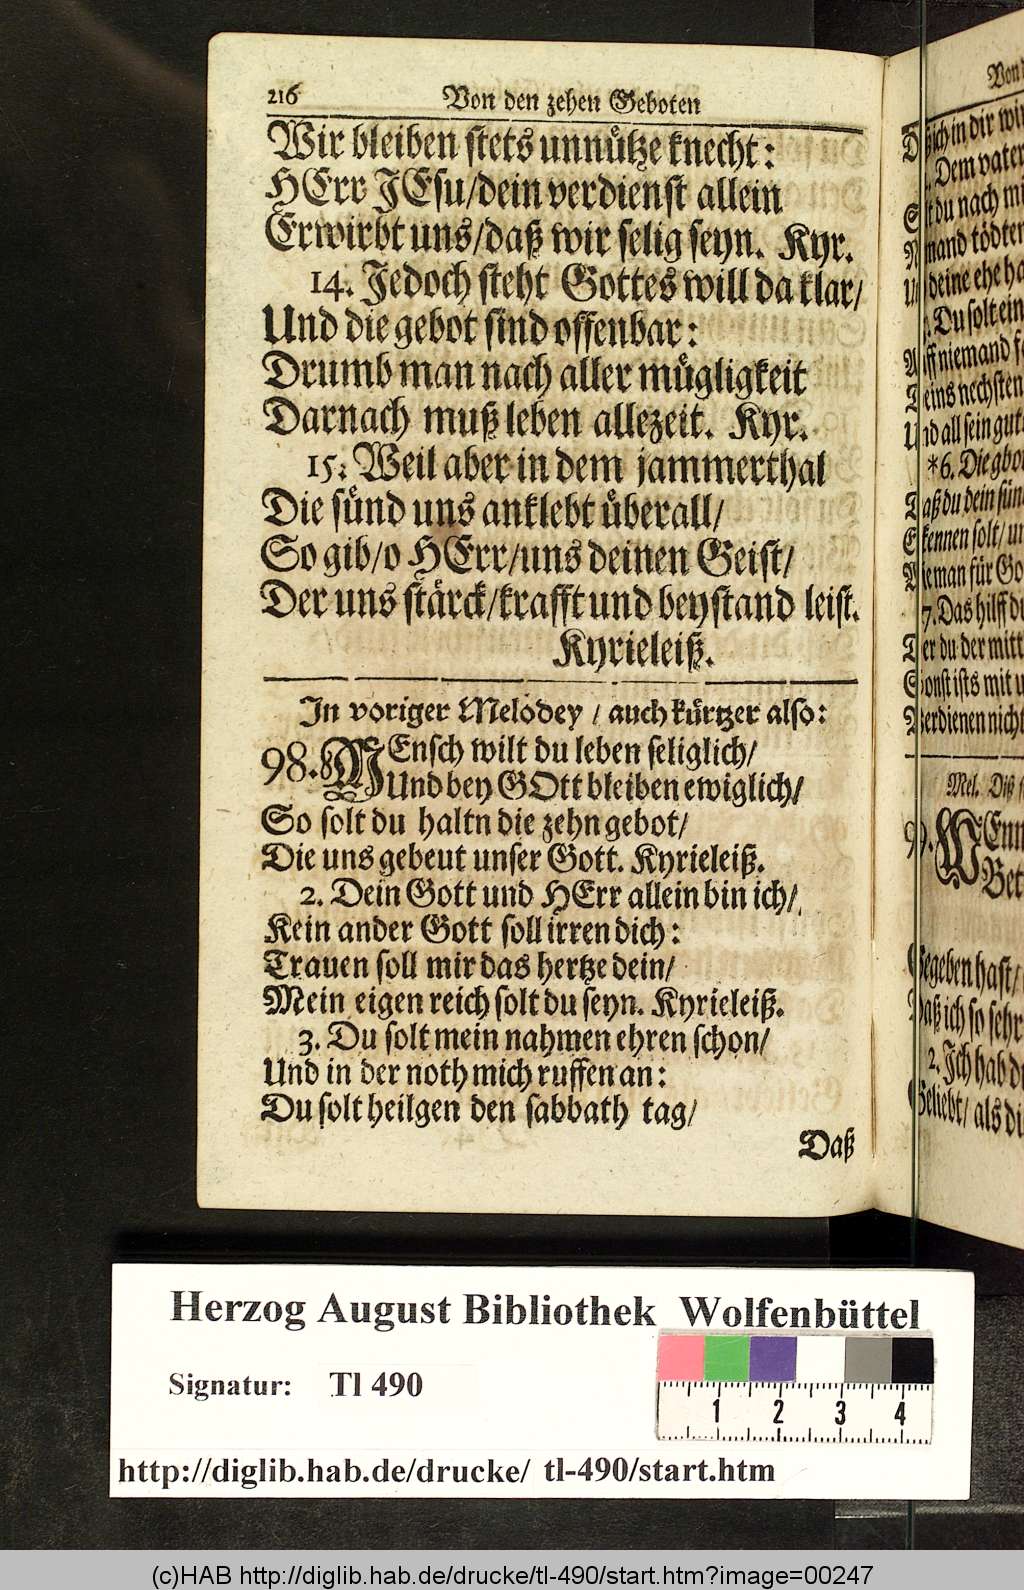 216 Von den zehen Geboten
Wir bleiben stets unnütze knecht:
HErr JEsu/dein verdienst allein
Erwirbt uns/daß wir selig seyn. Kyr.
14. Jedoch steht Gottes will da klar/
Und die gebot sind offenbar:
Drumb man nach aller mügligkeit
Darnach muß leben allezeit. Kyr.
15. Weil aber in dem jammerthal
Die sünd uns anklebt überall/
So gib/o HErr/uns deinen Geist/
Der uns stärck/krafft und beystand leist.
Kyrieleiß.
In voriger Melodey / auch kürtzer also:
98. MEnsch wilt du leben seliglich/
Und bey GOtt bleiben ewiglich/
So solt du haltn die zehn gebot/
Die uns gebeut unser Gott. Kyrieleiß.
2. Dein Gott und HErr allein bin ich/
Kein ander Gott soll irren dich:
Trauen soll mir das hertze dein/
Mein eigen reich solt du seyn. Kyrieleiß.
3. Du solt mein nahmen ehren schon/
Und in der noth mich ruffen an:
Du solt heilgen den sabbath tag/
Daß
Von
ich in dir
Dem vater
du nach
mand tödten
deine ehe
Du solt ein
niemand
eins nechsten
Und all sein gut
*6. Die
Daß du dein
kennen solt/
man für
7. Das hilff
Der du der mitt
Sonst ists mit
Verdienen nicht
Mel. Diß
99.
Bet
Gegeben hast/
Daß ich so sehr
2. Ich hab
Geliebt/ als
Herzog August Bibliothek Wolfenbüttel
Signatur: Tl 490
1 2 3 4
http://diglib.hab.de/drucke/ tl-490/start.htm
(c)HAB http://diglib.hab.de/drucke/tl-490/start.htm?image=00247